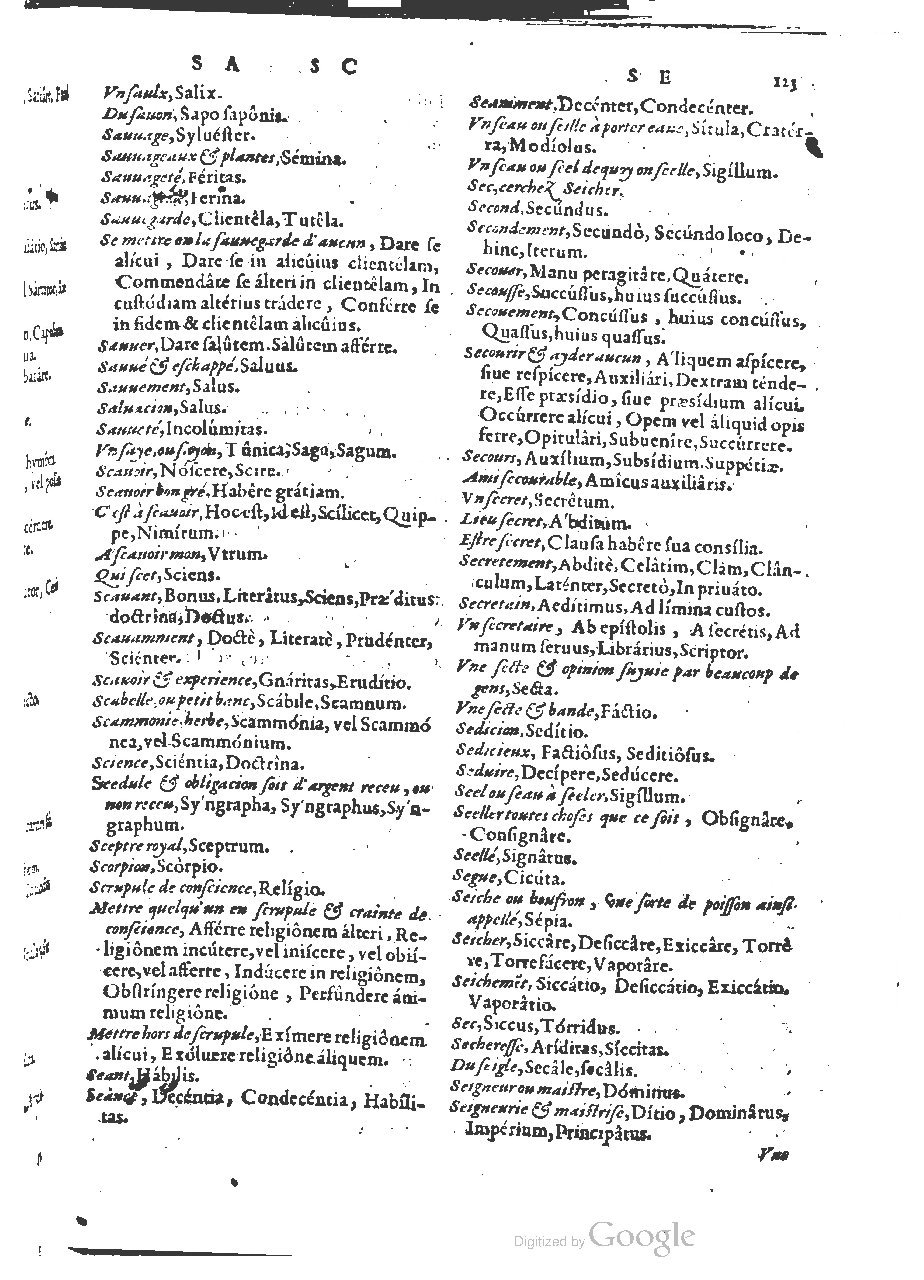 S A S C
Vn ſaulx, Salix.
Du ſauon, Sapo ſapônis.
Sauuage, Syluéſter.
Sauuageaux & plantes, Sémina.
Sauuageté, Féritas.
Ferina.
Sauuegarde, Clientêla, Tutêla.
Se mettre en la ſauuegarde d'aucun, Dare ſe
alícui, Dare ſe in alicûius clientêlam,
Commendâte ſe álteri in clientêlam, In
cuſtódiam altérius trádere, Conférre ſe
in fidem & clientêlam alicûius.
Sauuer, Dare ſalûtem. Salûtem afférre.
Sauué & eſchappé, Saluus.
Sauuement, Salus.
Saluacion, Salus.
Sauueté, Incolúmitas.
Vn ſaye, ou ſayon, Túnica, Saga, Sagum.
Scauoir, Nóſcere, Scire.
Scauoir bon gré, Habêre grátiam.
C'eſt à ſcauoir, Hoc eſt, Id eſt, Scílicet, Quip-
pe, Nimírum.
A ſcauoir mon, Vtrum.
Qui ſcet, Sciens.
Scauant, Bonus, Literâtus, Sciens, Præ'ditus
doctrina, Doctus.
Scauamment, Doctè, Literatè, Prudénter,
Sciénter.
Scauoir & experience, Gnáritas, Erudítio.
Scabelle, ou petit banc, Scábile, Scamnum.
Scammonie, herbe, Scammónia, vel Scammó
nea, vel Scammónium.
Science, Sciéntia, Doctrîna.
Scedule & obligacion ſoit d'argent receu, ou
non receu, Sy'ngrapha, Sy'ngraphus, Sy'n-
graphum.
Sceptre royal, Sceptrum.
Scorpion, Scòrpio.
Scrupule de conſcience, Relígio.
Mettre quelqu'un en ſcrupule & crainte de
conſcience, Afférre religiônem álteri, Re-
ligiônem incútere, vel iniícere, vel obií-
cere, vel afferre, Indúcere in religiônem,
Obſtríngere religiône, Perfúndere áni-
mum religiône.
Mettre hors de ſcrupule, Exímere religiônem
alícui, Exóluere religiône áliquem.
Seant, Hábilis.
Seance, Decéntia, Condecéntia, Habíli-
tas.
S E 123
Seamment, Decénter, Condecénter.
Vn ſeau ou ſeille à porter eaue, Sítula, Cratér-
ra, Modíolus.
Vn ſeau ou ſeel dequoy on ſeelle, Sigíllum.
Sec, cerchez Seicher.
Second, Secúndus.
Secondement, Secundò, Secúndo loco, De-
hinc, Iterum.
Secouer, Manu peragitâre, Quátere.
Secouſſe, Succúſſus, huius ſuccúſſus.
Secouement, Concúſſus, huius concúſſus,
Quaſſus, huius quaſſus.
Secourir & ayder aucun, A'liquem aſpícere,
ſiue reſpícere, Auxiliári, Dextram ténde-
re, Eſſe præsídio, ſiue præsídium alícui.
Occúrrere alícui, Opem vel áliquid opis
ferre, Opitulári, Subueníre, Succúrrere.
Secours, Auxílium, Subsídium. Suppétiæ.
Ami ſecourable, Amícus auxiliâris.
Vn ſecret, Secrêtum.
Lieu ſecret, A'bditum.
Eſtre ſecret, Clauſa habêre ſua consília.
Secretement, Abditè, Celâtim, Clàm, Clân-
culum, Laténter, Secretò, In priuáto.
Secretain, Aedítimus, Ad límina cuſtos.
Vn ſecretaire, Ab epíſtolis, A ſecrétis, Ad
manum ſeruus, Librárius, Scriptor.
Vne ſecte & opinion ſuyuie par beaucoup de
gens, Secta.
Vne ſecte & bande, Fáctio.
Sedicion, Sedítio.
Sedicieux, Factiôſus, Seditiôſus.
Seduire, Decípere, Sedúcere.
Seel ou ſeau à ſeeler, Sigíllum.
Seeller toutes choſes que ce ſoit, Obſignâre,
Conſignâre.
Seellé, Signâtus.
Segue, Cicúta.
Seiche ou bouſron, vne ſorte de poiſſon ainſi
appellé, Sépia.
Seicher, Siccâre, Deſiccâre, Exiccâre, Torrê
re, Torrefácere, Vaporâre.
Seichemēt, Siccátio, Deſiccátio, Exiccátio.
Vaporâtio.
Sec, Siccus, Tórridus.
Sechereſſe, Aríditas, Síccitas.
Du ſeigle, Secâle, ſecâlis.
Seigneur ou maiſtre, Dóminus.
Seigneurie & maiſtriſe, Dítio, Dominâtus,
Impérium, Principâtus.
Vne
Digitized by Google